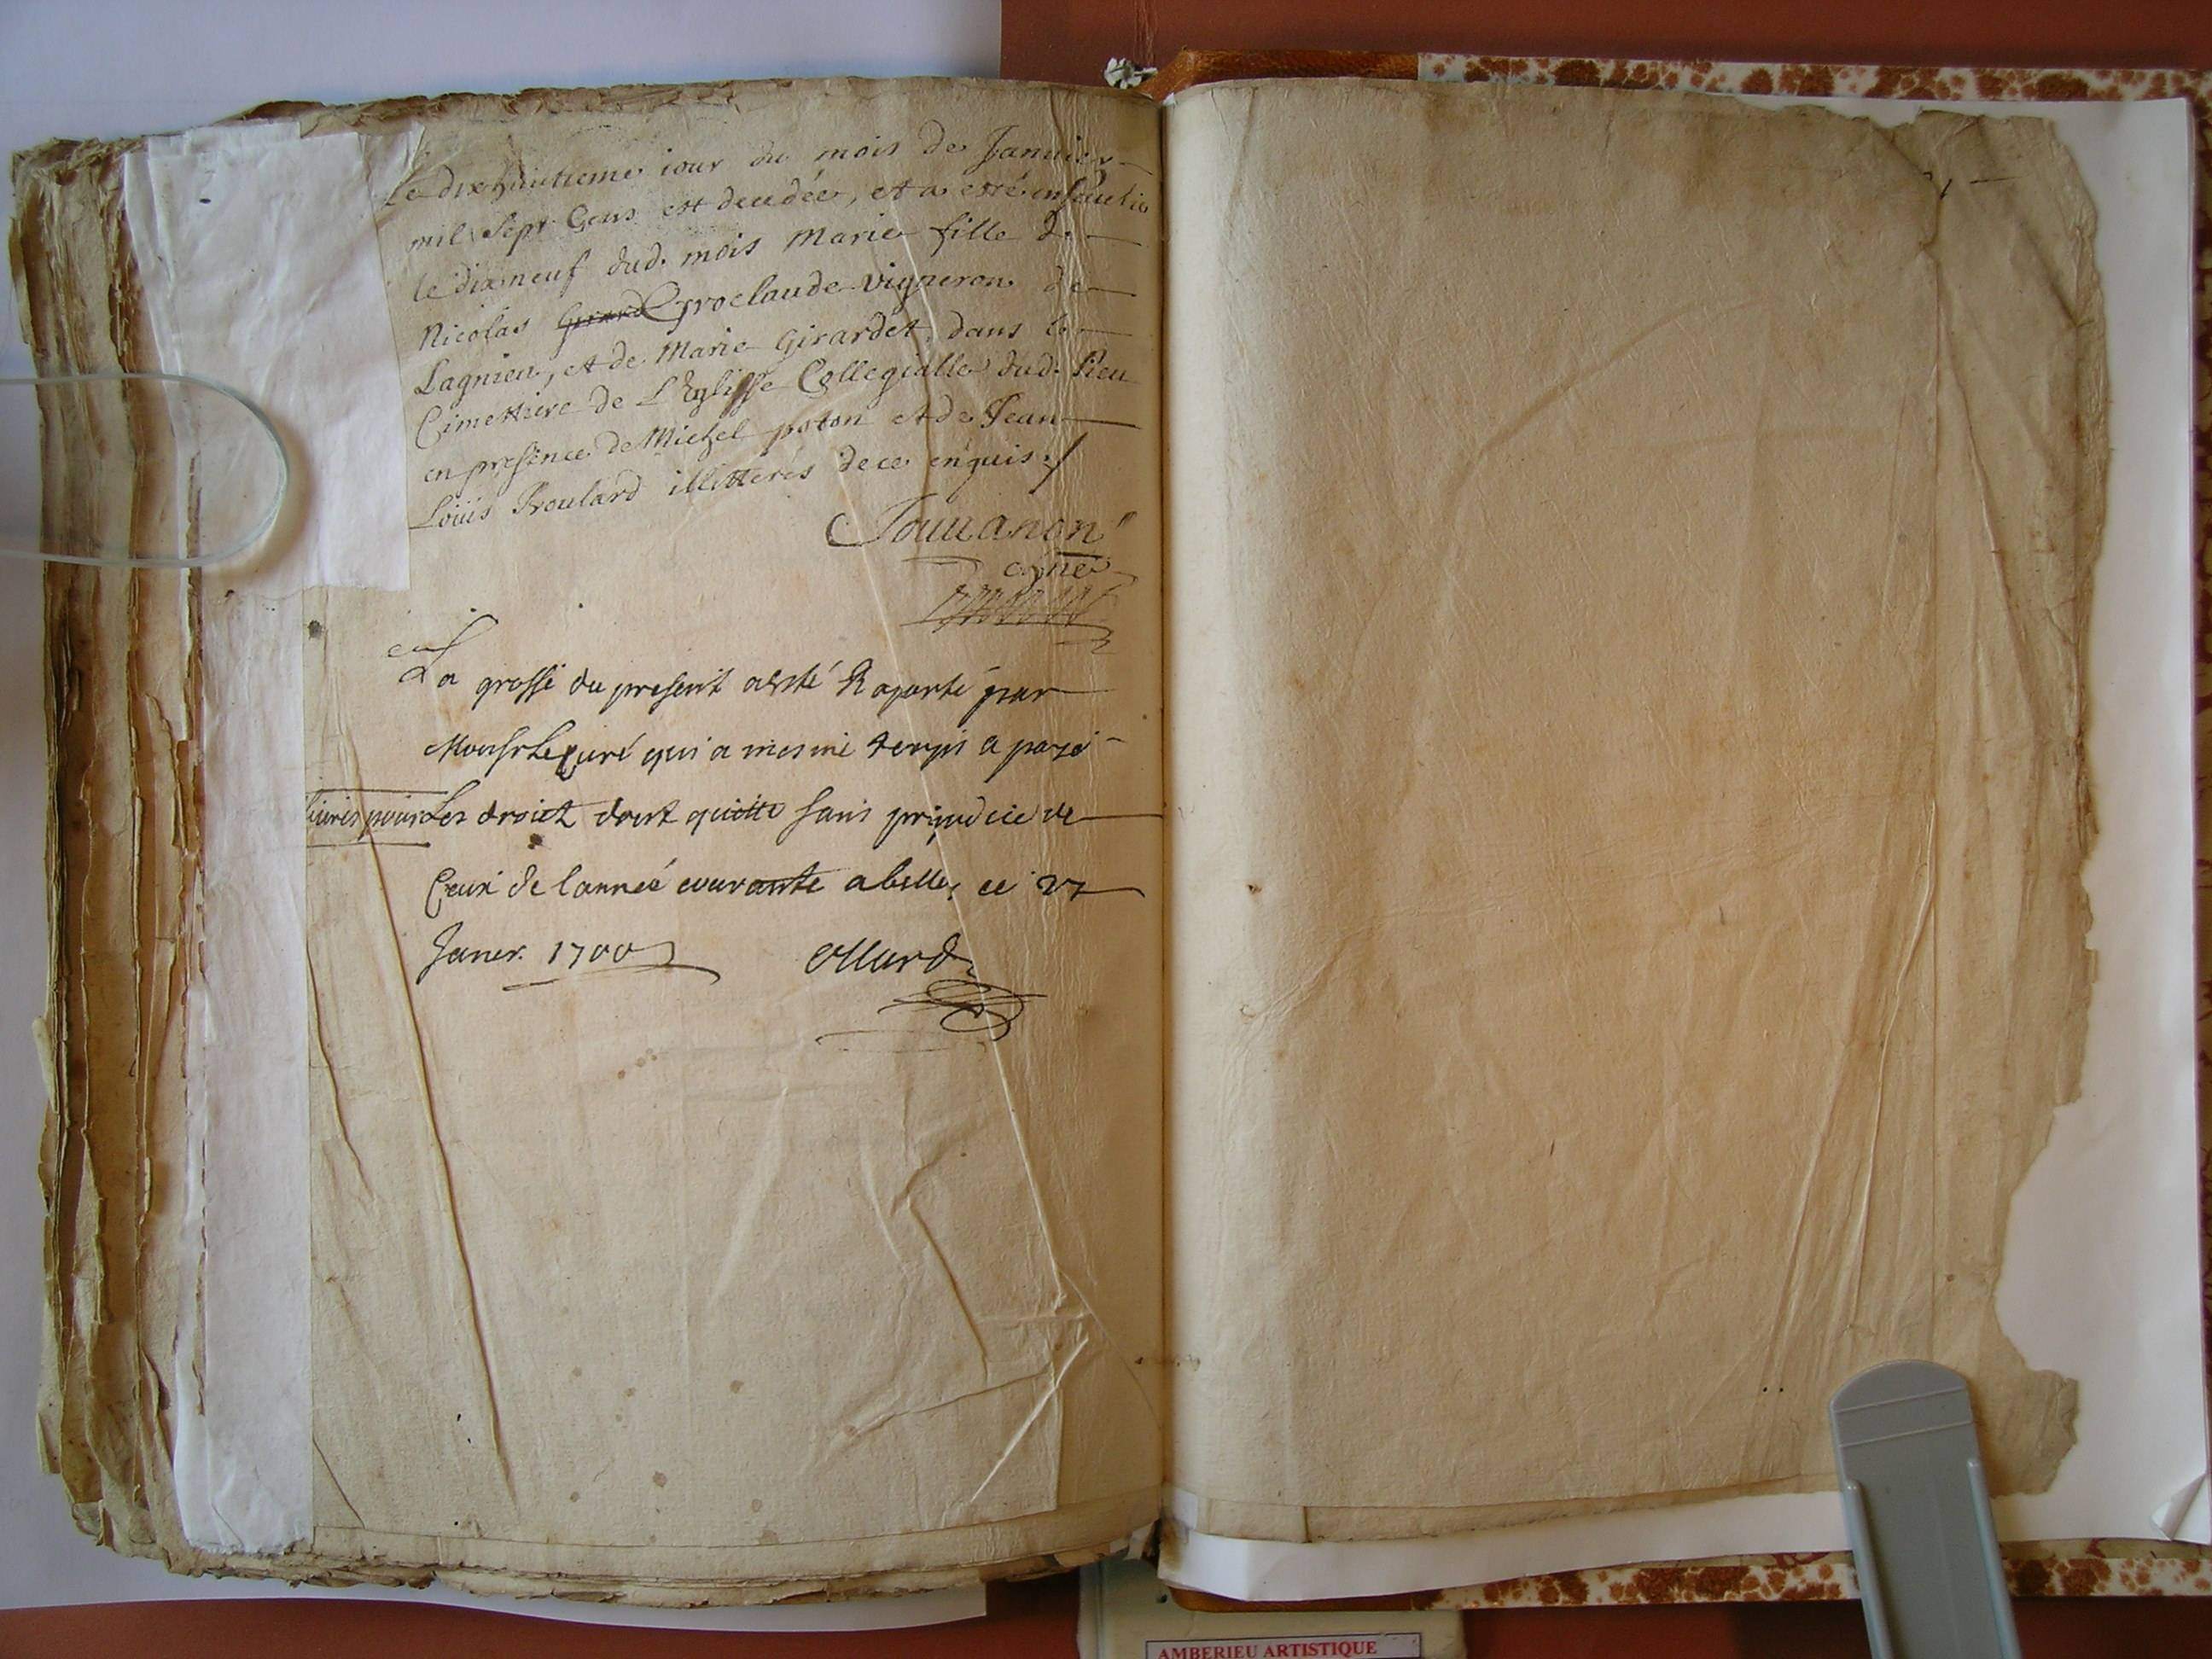 Le dixhuitieme iour du mois de Januier
mil Sept Cens est decedée, et a esté enseuelie
le dixneuf dud. mois Marie fille de
Nicolas Girard Groclaude vigneron de
Lagnieu, et de Marie Girardet, dans le
Cimettiere de L'Eglisse Collegialle dud. Lieu
en presence de Michel poton et de Jean
Loüis Broulard illitterés de ce enquis ./
Jouuanon
La grosse du present a esté Raporté par
Monsr Le Curé qui a mesme temps a payé
liures pour Les droict dont quitte sans prejudice de
Ceux de lannée courante a belley ce 27
Janer. 1700
Ollard
AMBERIEU ARTISTIQUE